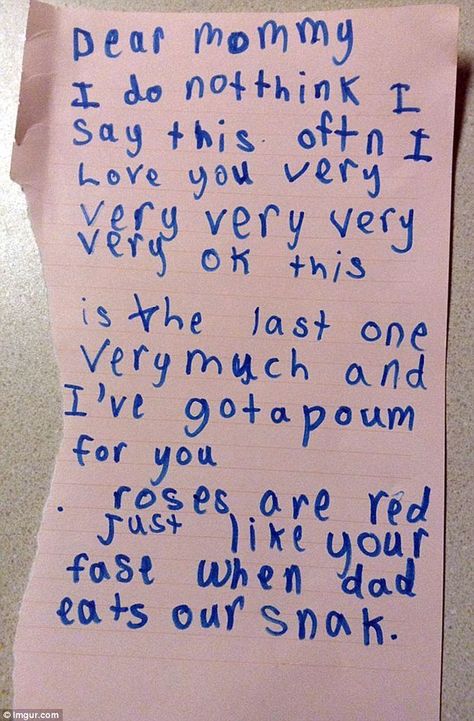 Dear mommy
I do not think I
say this oftn I
Love you very
very very very
very ok this
is the last one
very much and
I've got a poum
for you
. roses are red
just like your
fase when dad
eats our snak.
© Imgur.com